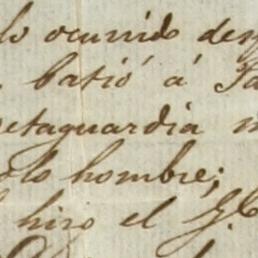 lo ocurrido des
batió á Sa
retaguardia
olo hombre;
hizo el